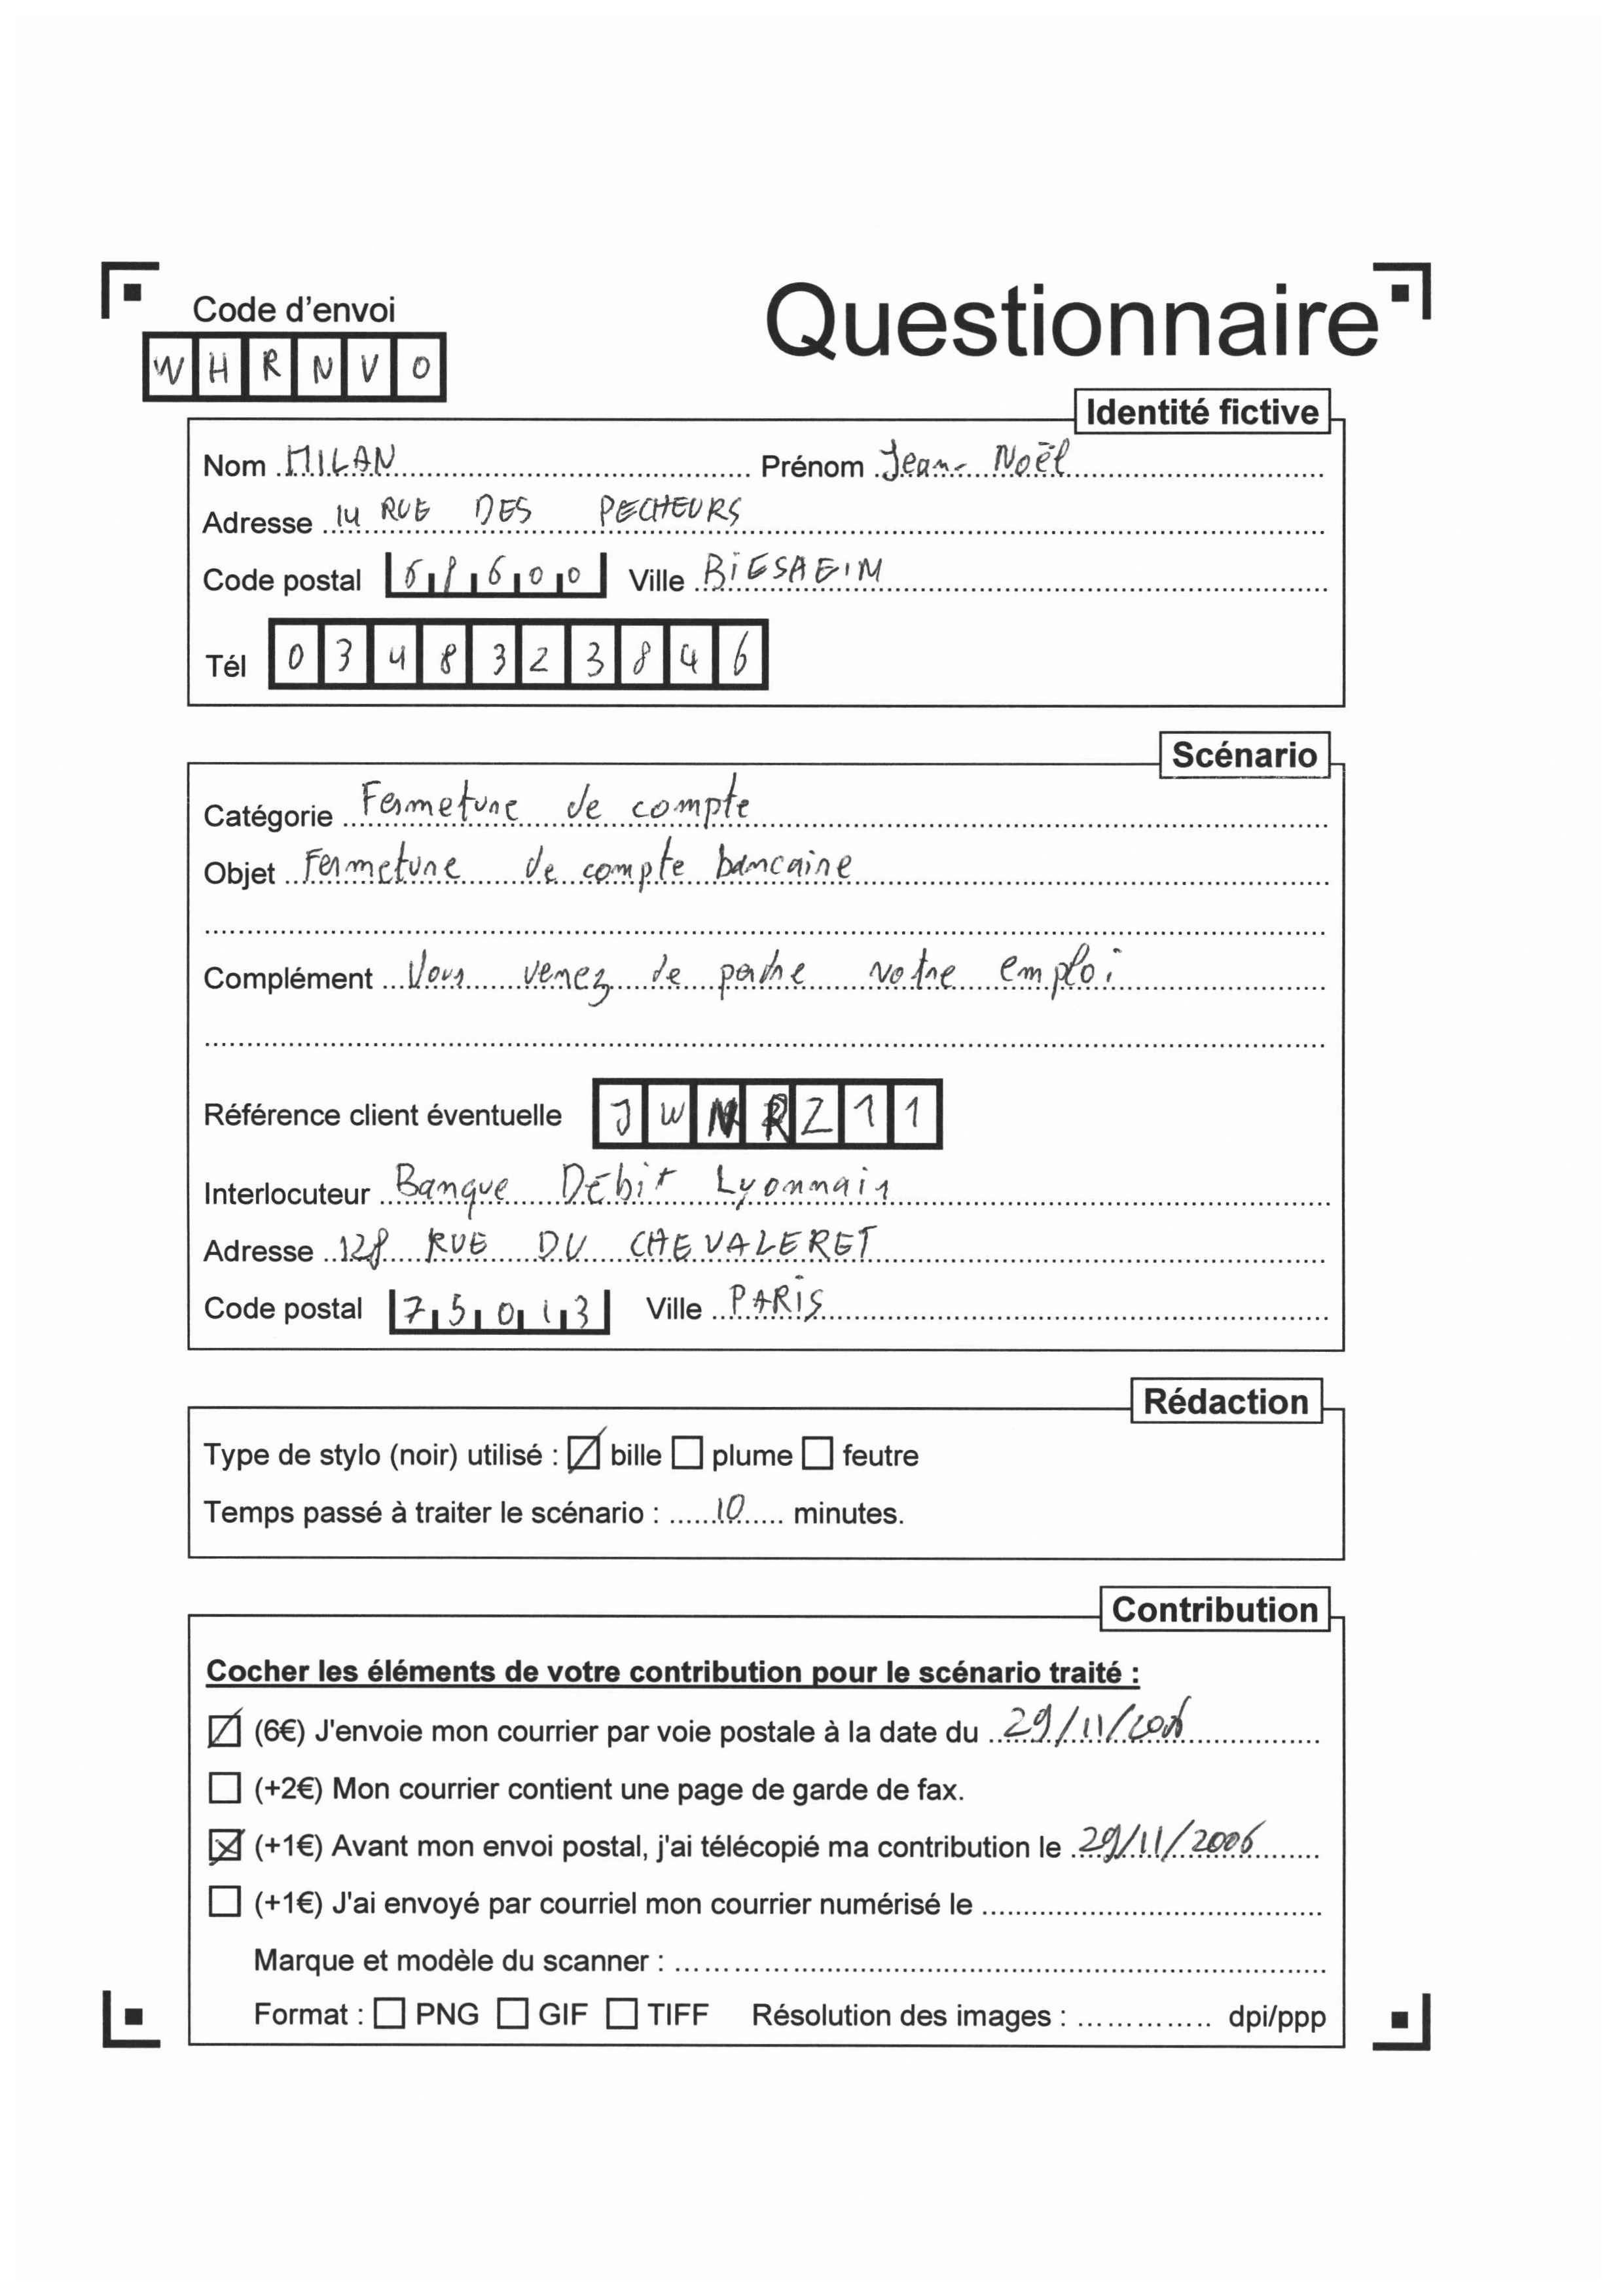 Code d'envoi
Questionnaire
W H R N V O
Identité fictive
Nom MILAN Prénom Jean-Noël
Adresse 14 RUE DES PECHEURS
Code postal 68600 Ville BIESHEIM
Tél 0348323846
Scénario
Catégorie Fermeture de compte
Objet Fermeture de compte bancaire
Complément Vous venez de perdre votre emploi
Référence client éventuelle JWNRZ11
Interlocuteur Banque Débit Lyonnais
Adresse 128 RUE DU CHEVALERET
Code postal 75013 Ville PARIS
Rédaction
Type de stylo (noir) utilisé : bille plume feutre
Temps passé à traiter le scénario : 10 minutes.
Contribution
Cocher les éléments de votre contribution pour le scénario traité :
(6€) J'envoie mon courrier par voie postale à la date du 29/11/2006
(+2€) Mon courrier contient une page de garde de fax.
(+1€) Avant mon envoi postal, j'ai télécopié ma contribution le 29/11/2006
(+1€) J'ai envoyé par courriel mon courrier numérisé le
Marque et modèle du scanner :
Format : PNG GIF TIFF Résolution des images : dpi/ppp